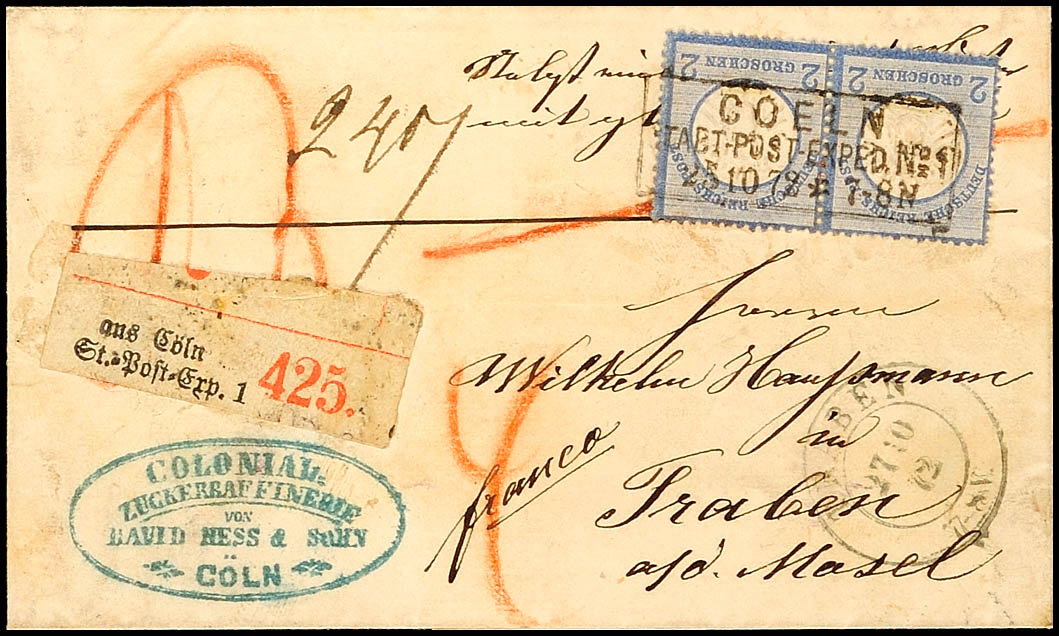 2 GROSCHEN 2
2 GROSCHEN 2
DEUTSCHE REICHS-POST
DEUTSCHE REICHS-POST
COELN
STADT-POST-EXPED. No 1
10 72 * 7-8N
240
mit
aus Cöln
St.-Post-Exp. 1
425.
Herrn
Wilhelm Haussmann
in
franco
Traben
a/d. Mosel
TRABEN
27 10
72
COLONIAL-
ZUCKERRAFFINERIE
VON
DAVID HESS & SOHN
CÖLN